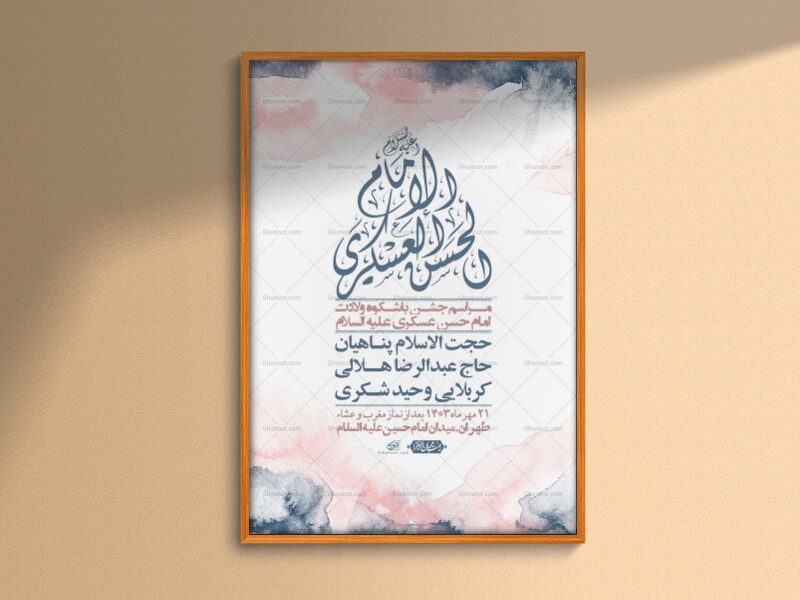 علیه السلام
الامام
الحسن العسکری
مراسم جشن باشکوه ولادت
امام حسن عسکری علیه السلام
حجت الاسلام پناهیان
حاج عبدالرضا هلالی
کربلایی وحید شکری
۲۱ مهر ماه ۱۴۰۳ بعد از نماز مغرب و عشاء
طهران.میدان امام حسین علیه السلام
Ghonoot.com